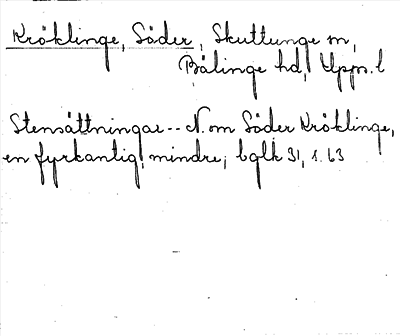 Kröklinge, Söder, Skuttunge sn,
Bälinge hd, Upps. l
Stensättningar -- N. om Söder Kröklinge,
en fyrkantig, mindre; bglk 31, s. 63